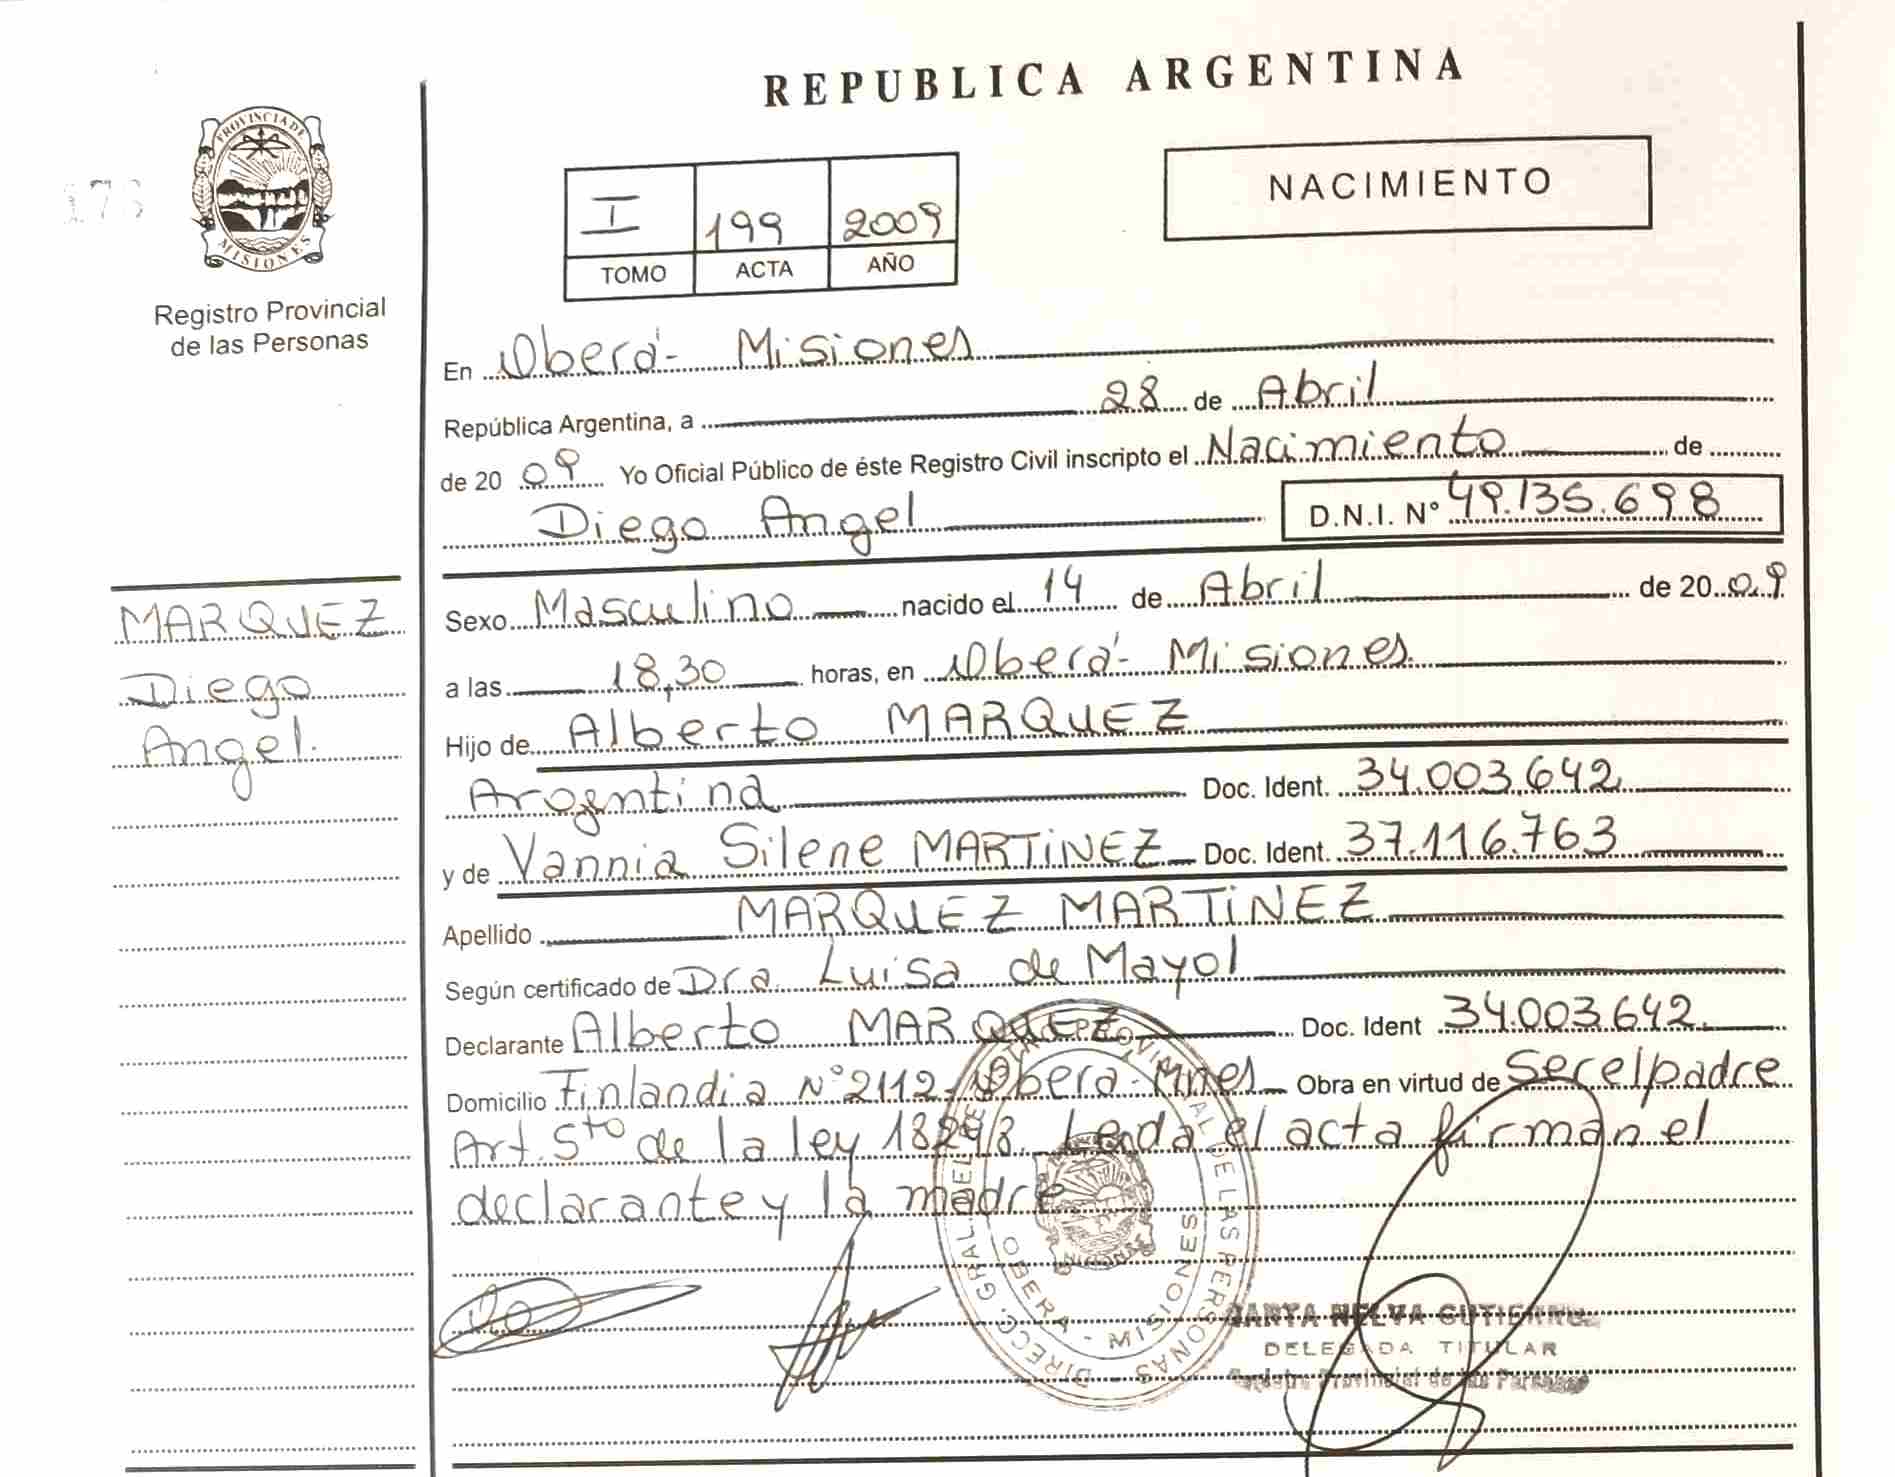 REPUBLICA ARGENTINA
PROVINCIA DE
MISIONES
Registro Provincial
de las Personas
I 199 2009
TOMO ACTA AÑO
NACIMIENTO
En Oberá - Misiones
República Argentina, a 28 de Abril
de 20 09 Yo Oficial Público de éste Registro Civil inscripto el Nacimiento de
Diego Angel D.N.I. N° 49.135.698
MARQUEZ
Diego
Angel.
Sexo Masculino nacido el 14 de Abril de 20 09
a las 18,30 horas, en Oberá - Misiones
Hijo de Alberto MARQUEZ
Argentina Doc. Ident. 34.003.642
y de Vannia Silene MARTiNEZ Doc. Ident. 37.116.763
Apellido MARQUEZ MARTiNEZ
Según certificado de Dra. Luisa de Mayol
Declarante Alberto MARQUEZ Doc. Ident 34.003.642.
Domicilio Finlandia N° 2112 - Oberá - Mnes Obra en virtud de Ser el padre
Art. 5to de la ley 18248. Leida el acta firman el
declarante y la madre
DIRECC. GRAL. DEL REG. PROVINCIAL DE LAS PERSONAS
OBERA - MISIONES
NELVA
DELEGADA TITULAR
Registro Provincial de las Personas